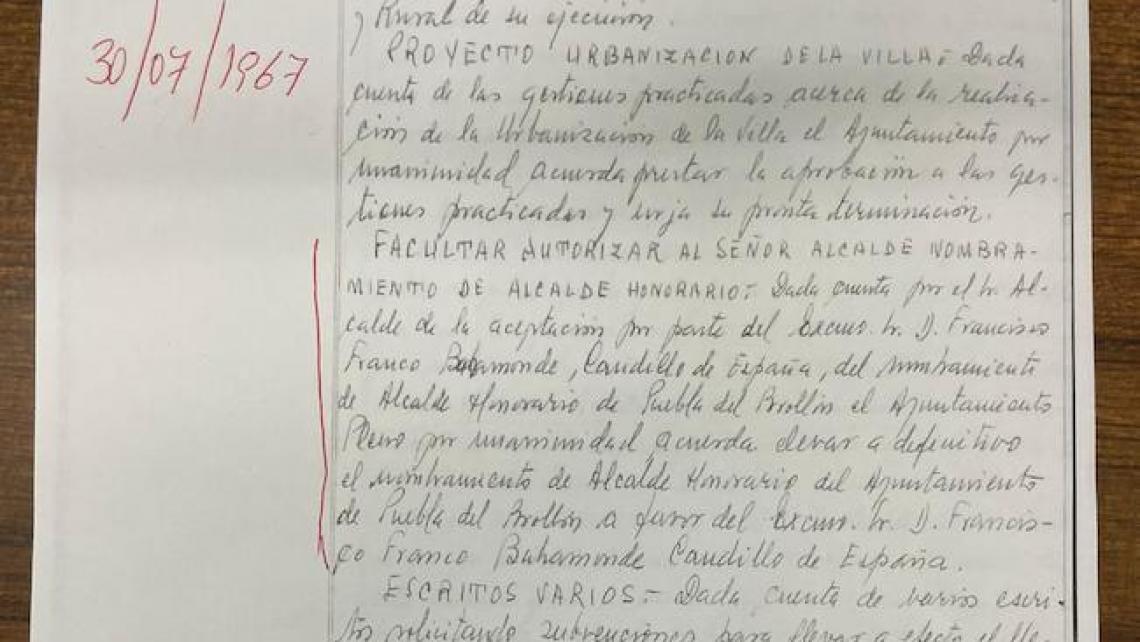 30/07/1967
y Rural de su ejecución.
PROYECTO URBANIZACION DE LA VILLA.- Dada
cuenta de las gestiones practicadas acerca de la realiza-
ción de la Urbanización de la Villa el Ayuntamiento por
unanimidad acuerda prestar la aprobación a las ges-
tiones practicadas y urja su pronta terminación.
FACULTAR AUTORIZAR AL SEÑOR ALCALDE NOMBRA-
MIENTO DE ALCALDE HONORARIO:- Dada cuenta por el Sr. Al-
calde de la aceptación por parte del Excmo. Sr. D. Francisco
Franco Bahamonde, Caudillo de España, del nombramiento
de Alcalde Honorario de Puebla del Brollón el Ayuntamiento
Pleno por unanimidad acuerda elevar a definitivo
el nombramiento de Alcalde Honorario del Ayuntamiento
de Puebla del Brollón a favor del Excmo. Sr. D. Francis-
co Franco Bahamonde Caudillo de España.
ESCRITOS VARIOS.- Dada cuenta de varios escri-
tos solicitando subvenciones para llevar a efecto el